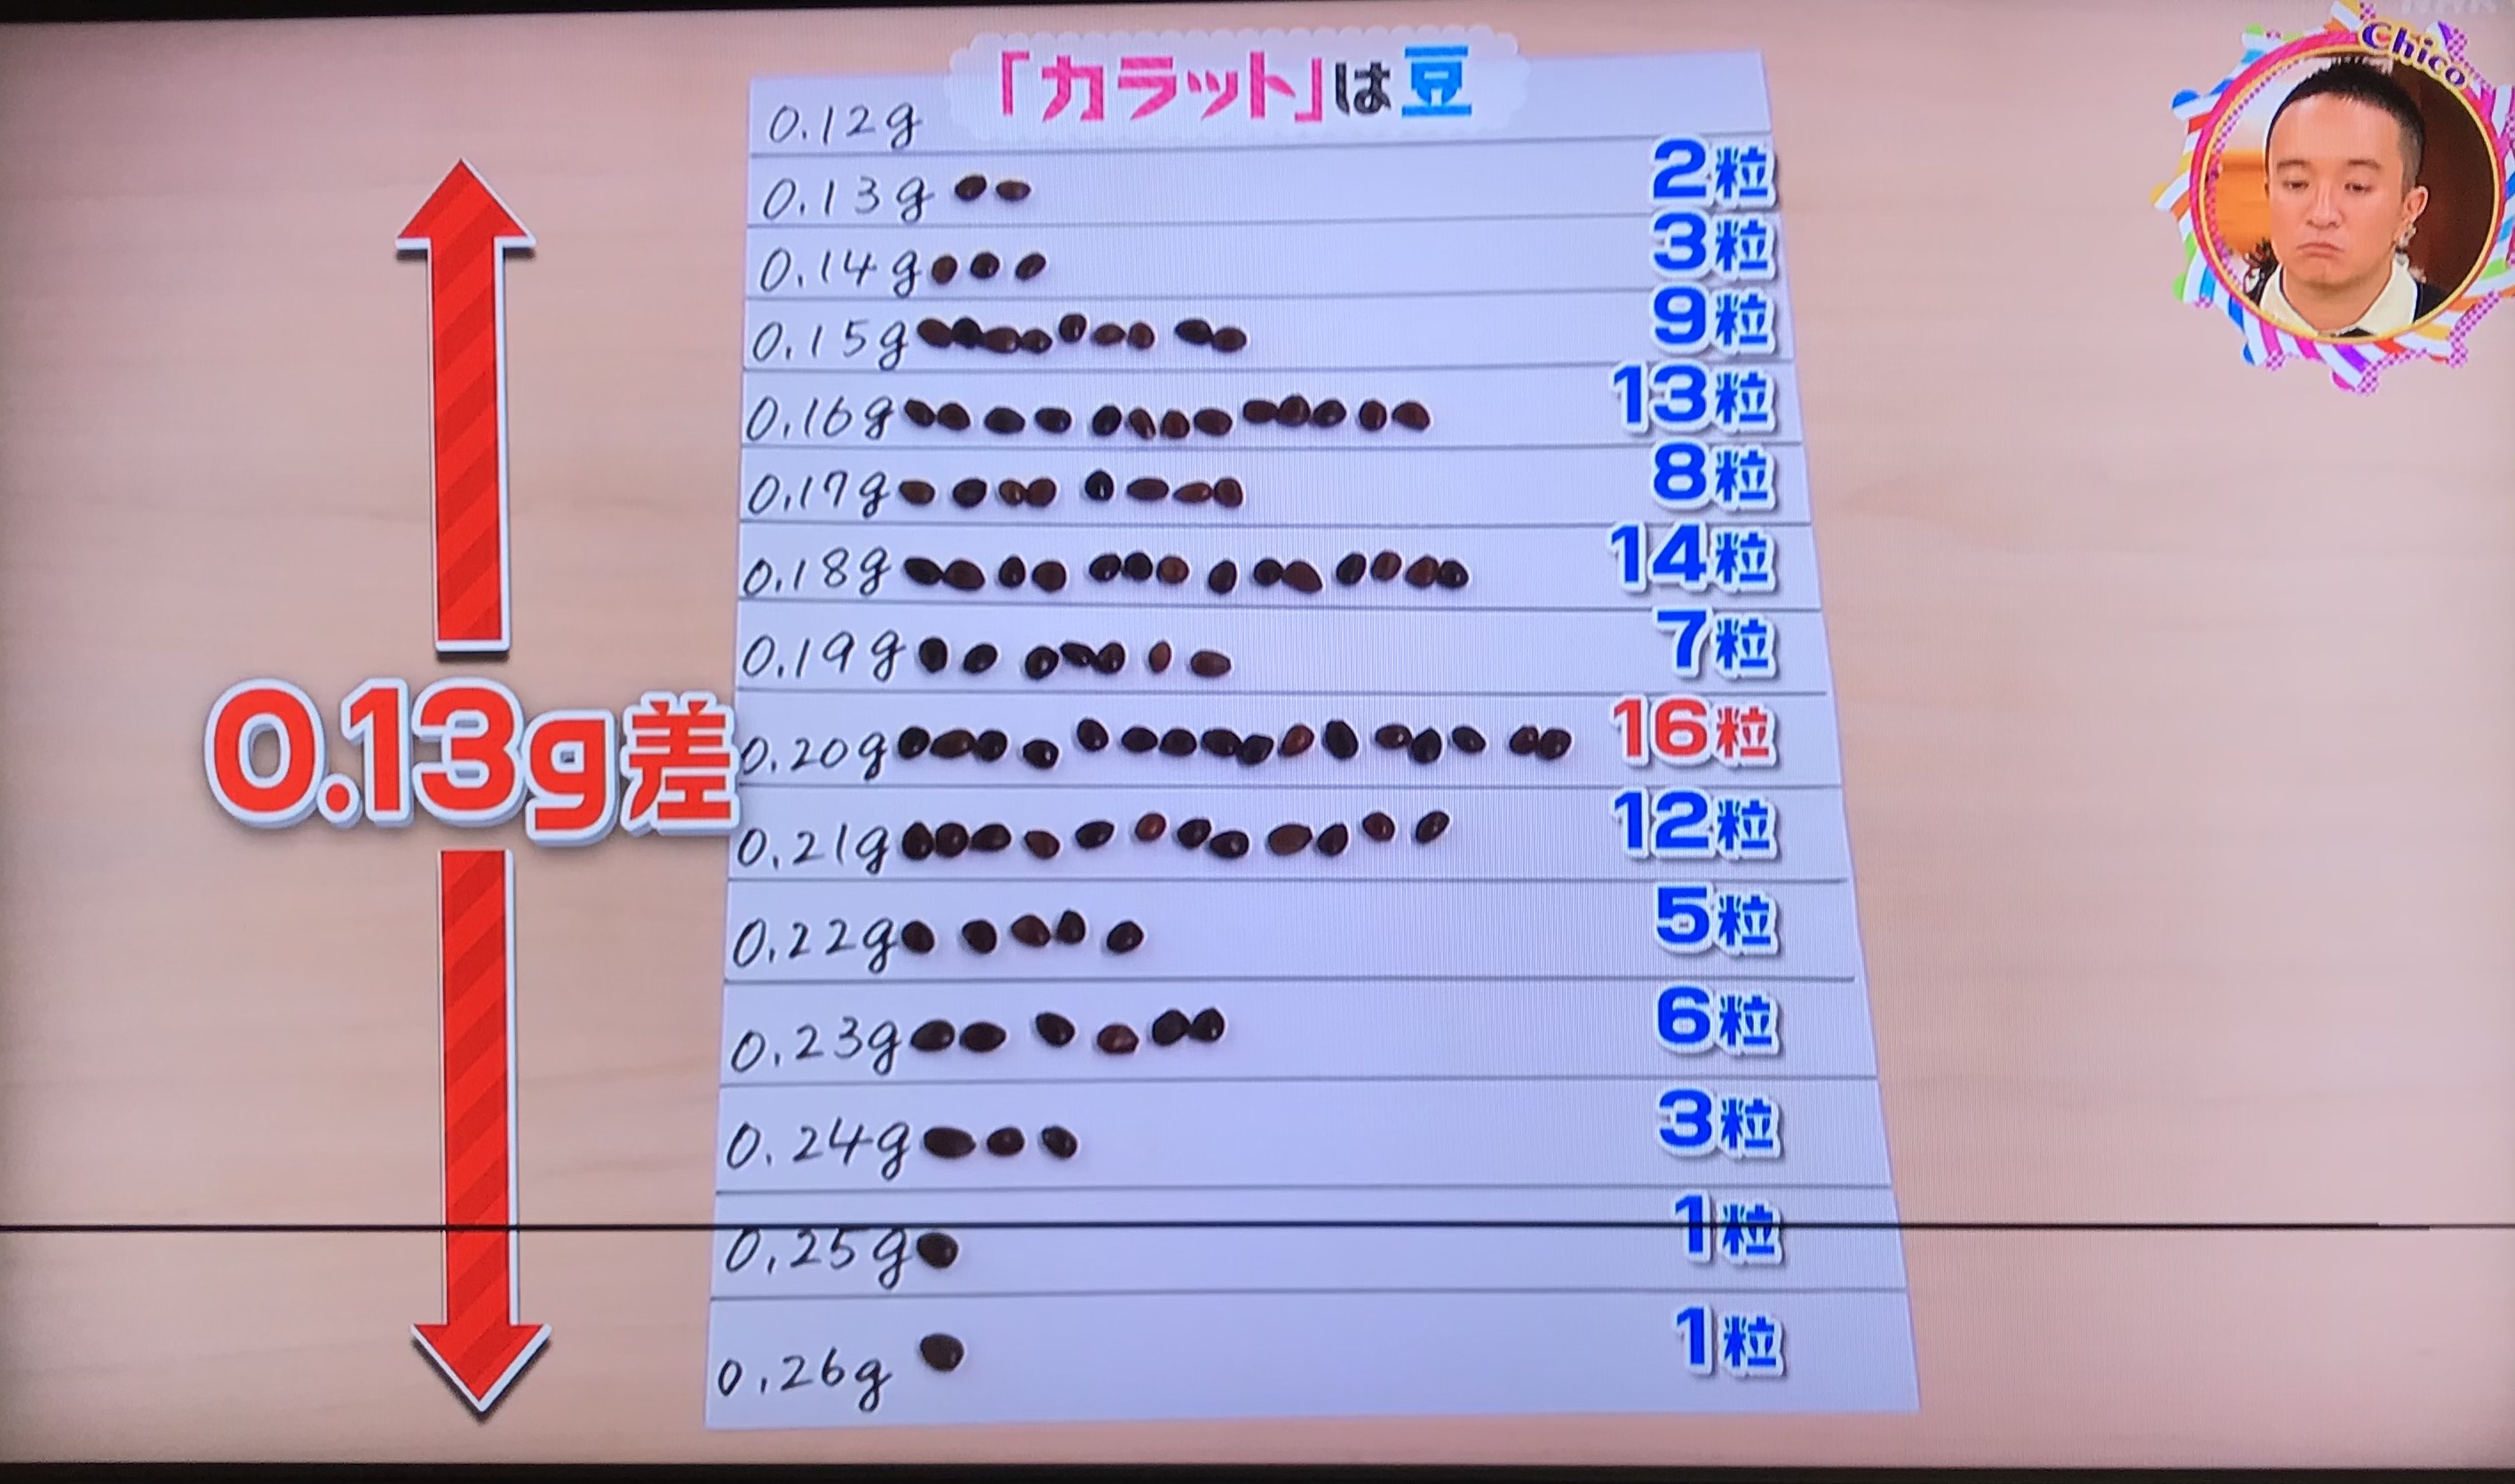 「カラット」は豆
Chico
0.12g
0.13g 2粒
0.14g 3粒
0.15g 9粒
0.16g 13粒
0.17g 8粒
0.18g 14粒
0.19g 7粒
0.13g差
0.20g 16粒
0.21g 12粒
0.22g 5粒
0.23g 6粒
0.24g 3粒
0.25g 1粒
0.26g 1粒